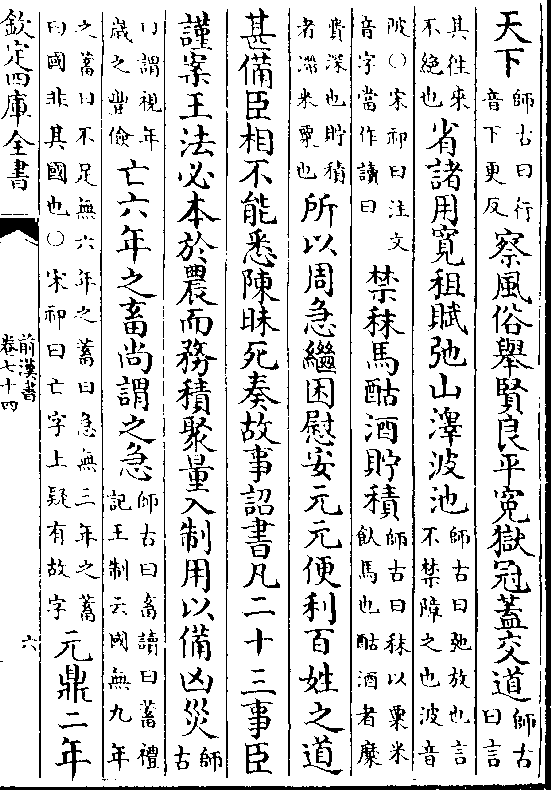 天下師古曰行音下更反察風俗舉賢良平冤獄冠蓋交道師古曰言
其徃來不絶也省諸用寛租賦弛山澤波池師古曰弛放也言不禁障之也波音
陂○宋祁曰注文音字當作讀曰禁秣馬酤酒貯積師古曰秣以粟米飲馬也酤酒者糜
費深也貯積者滯米粟也所以周急繼困慰安元元便利百姓之道
甚備臣相不能悉陳昧死奏故事詔書凡二十三事臣
謹案王法必本於農而務積聚量入制用以備凶災師古
曰謂視年歲之豐儉亡六年之畜尚謂之急師古曰畜讀曰蓄禮記王制云國無九年
之蓄曰不足無六年之蓄曰急無三年之蓄曰國非其國也○宋祁曰亡字上疑有故字元鼎二年
欽定四庫全書
前漢書
卷七十四
六